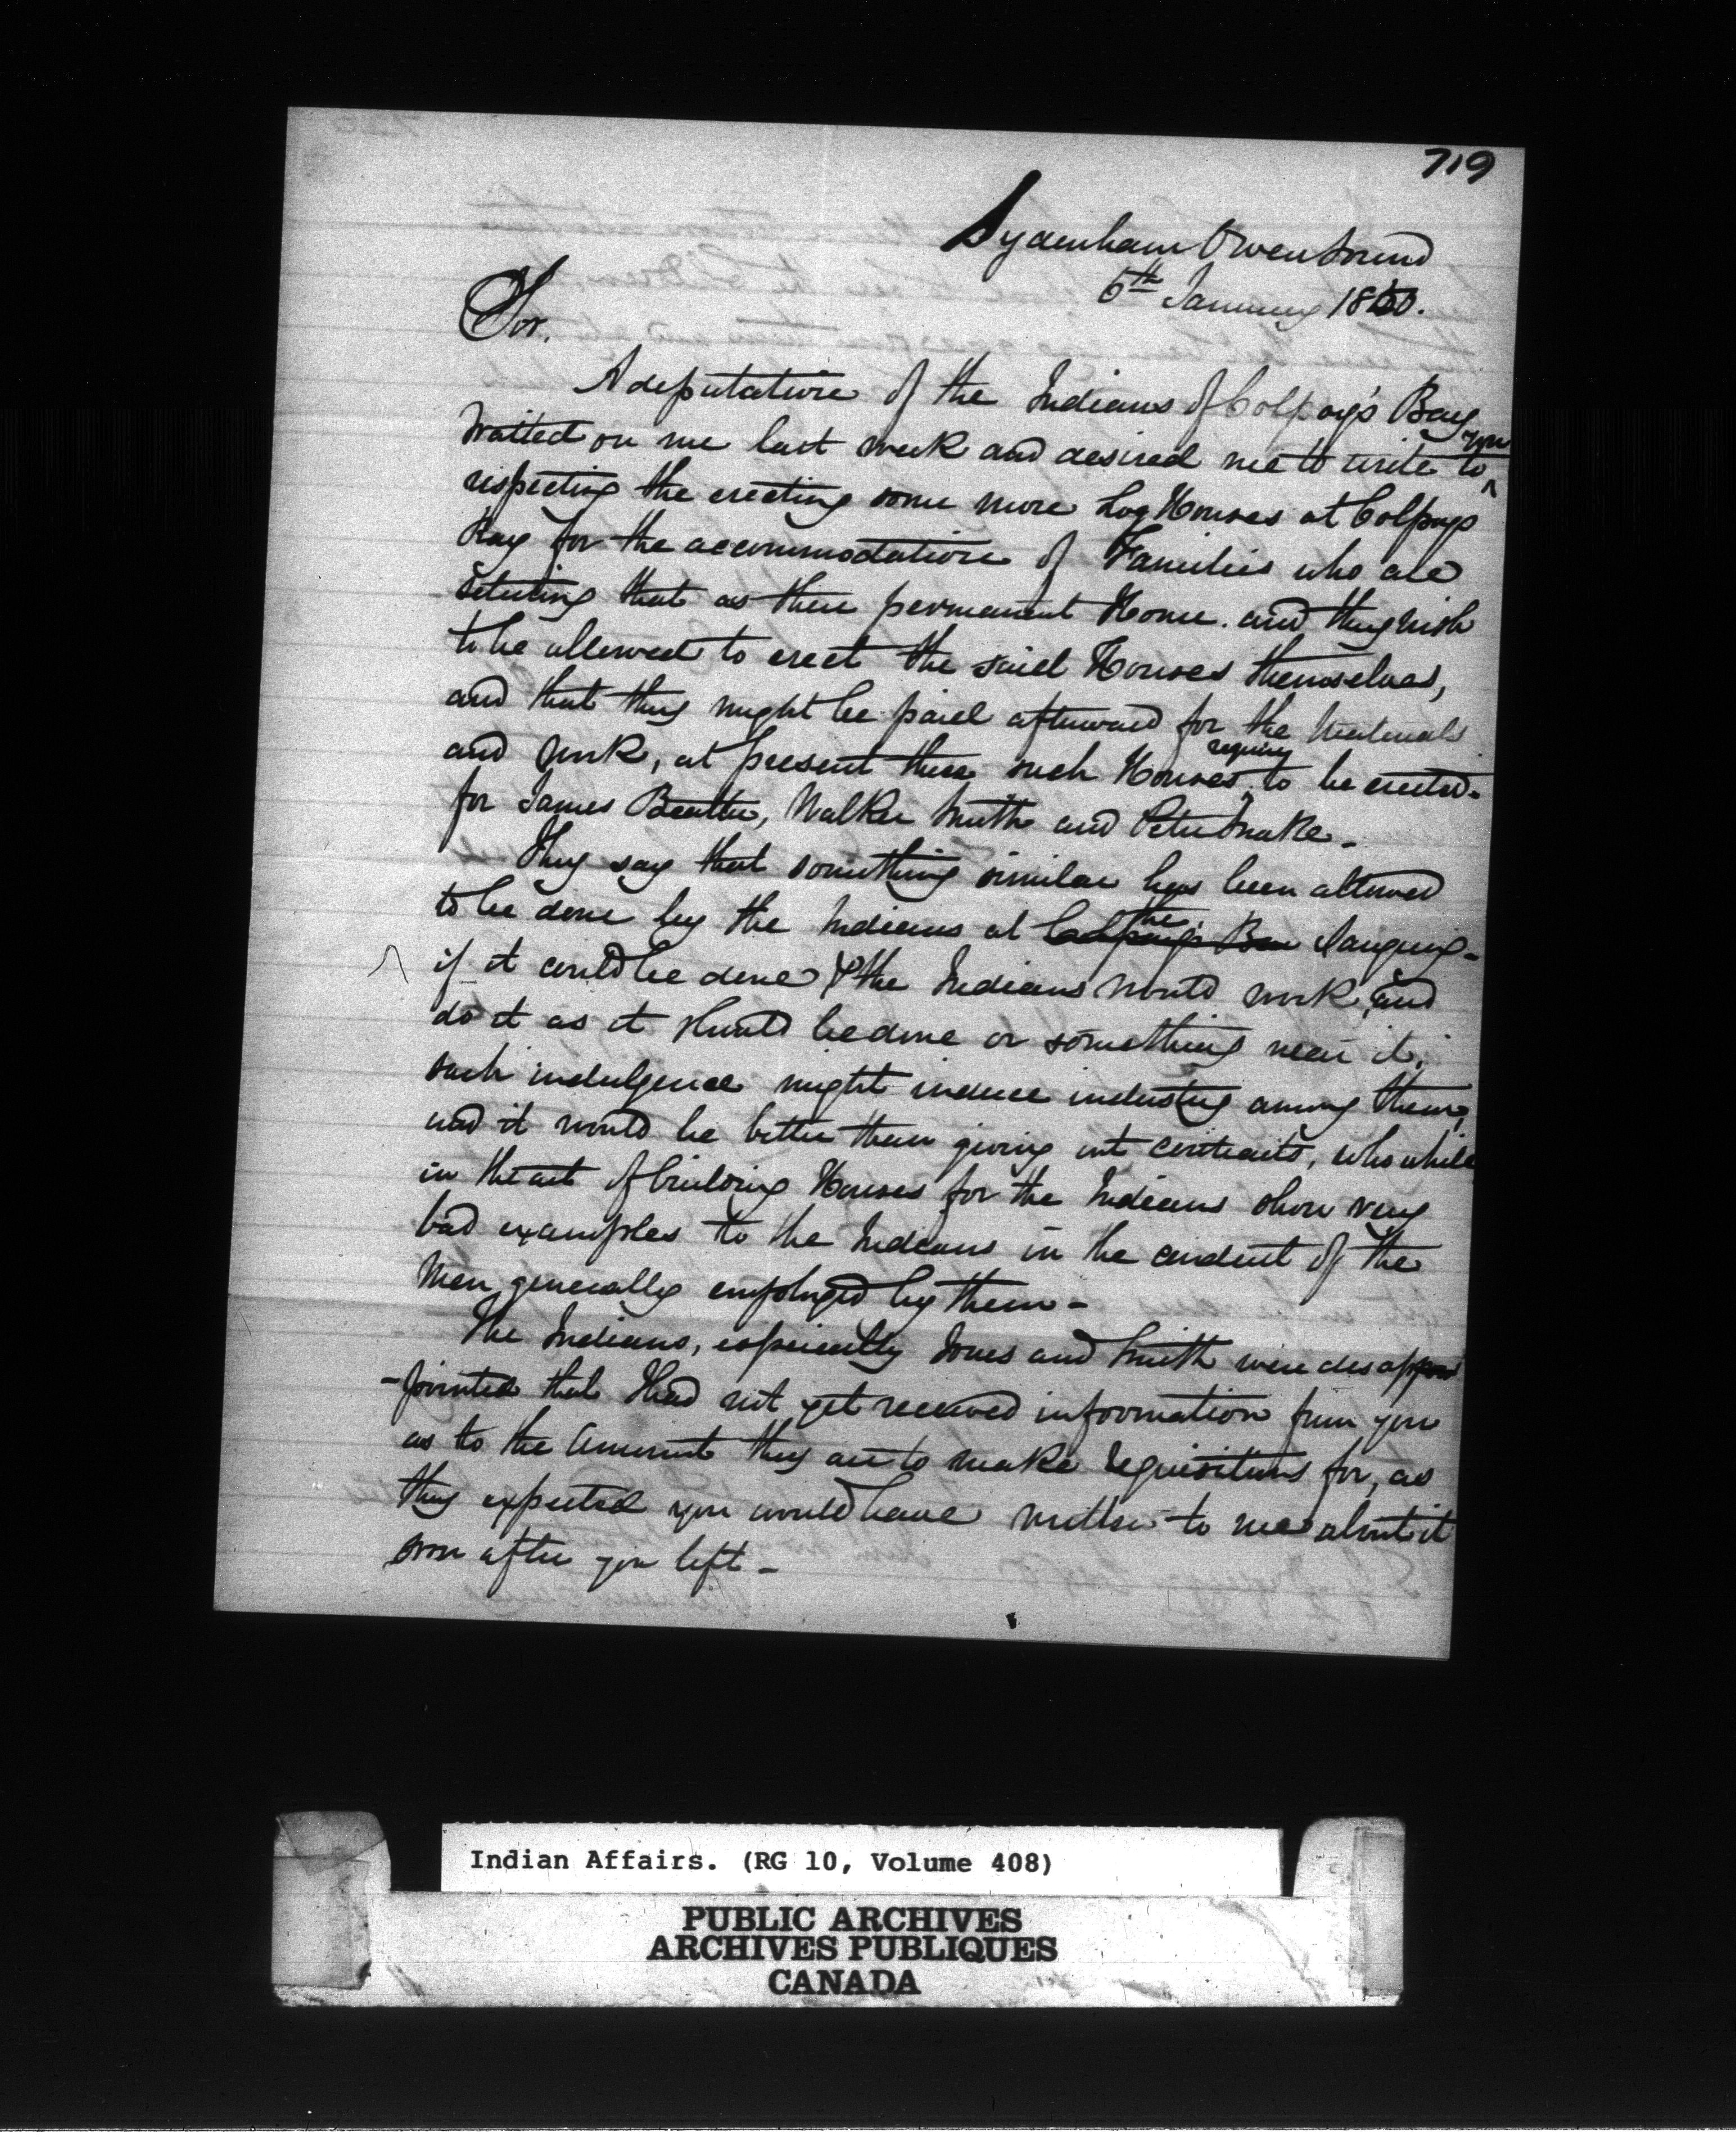 719
Sydenham Owen Sound
6th January 1860.
Sir.
A deputation of the Indians of Colpoy's Bay
waited on me last week and desired me to write to you
respecting the erecting some more Log Houses at Colpoys
Bay for the accommodation of Families who are
that as their permanent Home. and they wish
to be allowed to erect the said Houses themselves,
and that they might be paid afterward for the Materials
and work, at present three such Houses requiring to be erected.
for James Beattie, Walker Smith and Peter Snake -
They say that something similar has been allowed
to be done by the Indians at Colpoy's Bay the Saugeeng -
if it could be done & the Indians would work, and
do it as it should be done or something near it,
such indulgence might induce industry among them,
and it would be better than giving out contracts, who while
in the act of building Houses for the Indians show very
bad examples to the Indians in the conduct of the
Men generally employed by them -
The Indians, especially Jones and Smith were disappoin
-pointed that I had not yet received information from you
as to the Amount they are to make requisitions for, as
they expected you would have written to me about it
soon after you left -
Indian Affairs. (RG 10, Volume 408)
PUBLIC ARCHIVES
ARCHIVES PUBLIQUES
CANADA